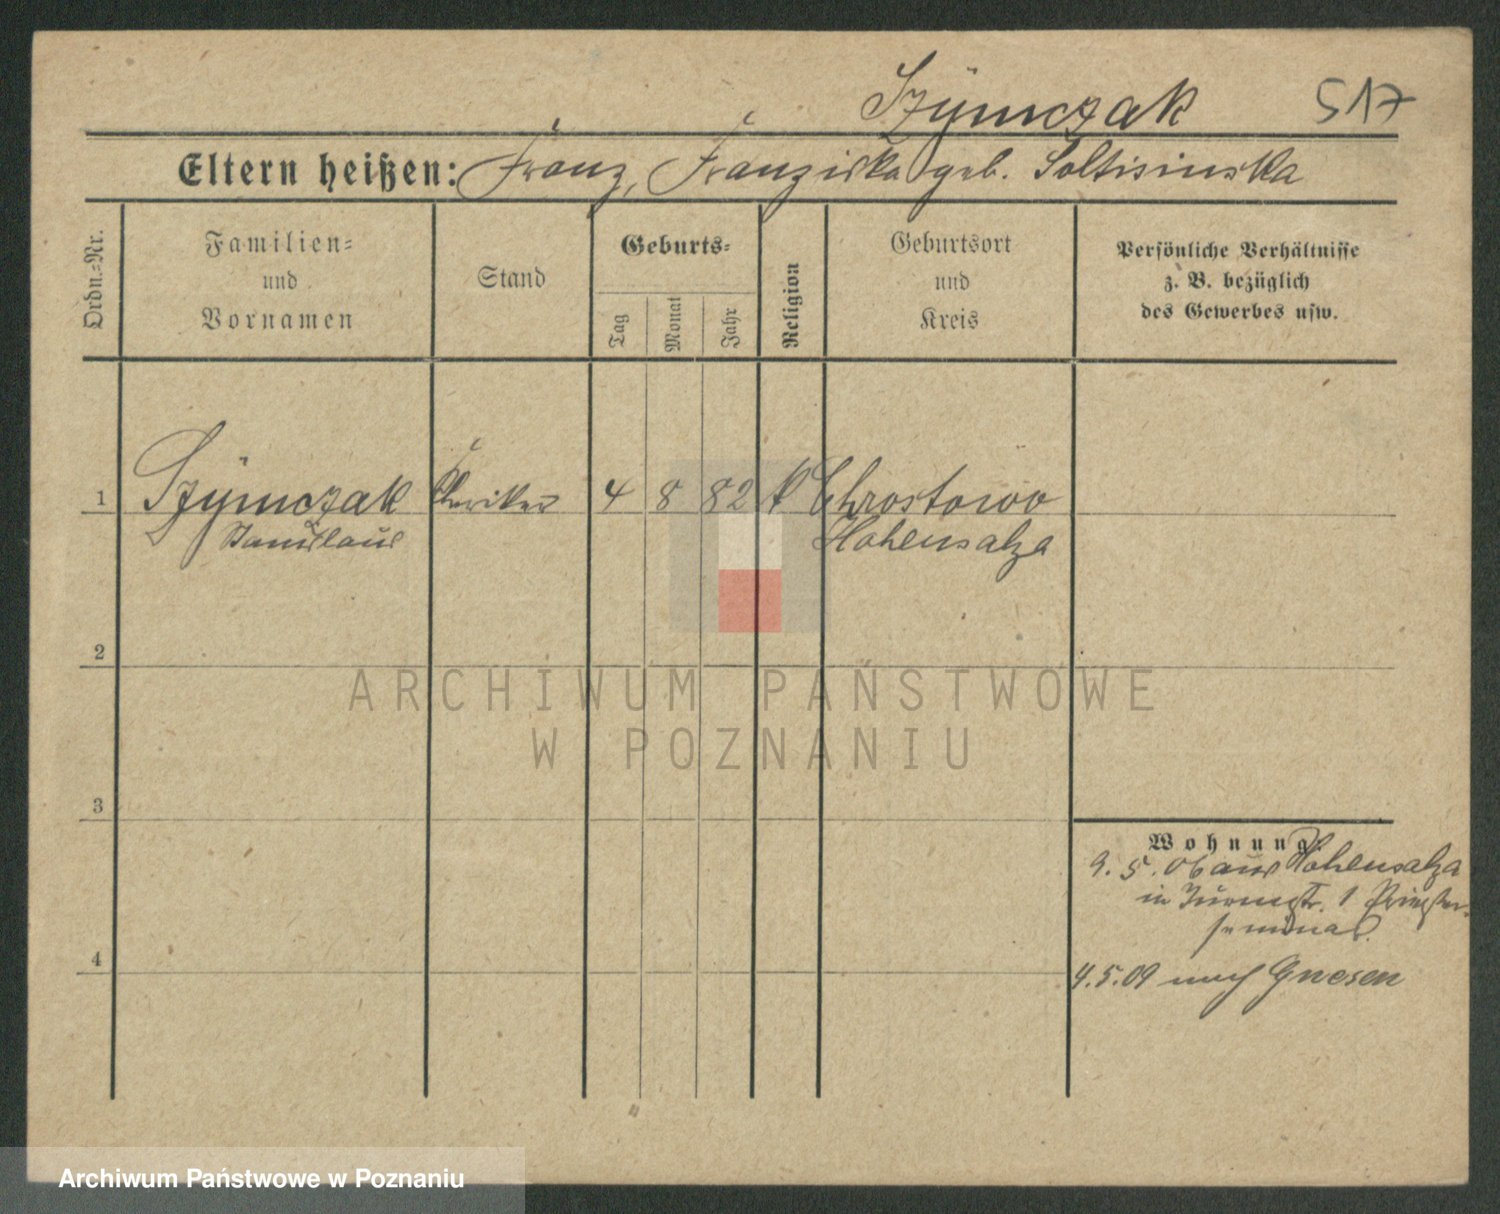 Szÿmczak 517
Eltern heißen: Franz, Franziska geb. Soltisinska
Ordn.-Nr.
Familien-
und
Vornamen
Stand
Geburts-
Tag
Monat
Jahr
Religion
Geburtsort
und
Kreis
Persönliche Verhältnisse
z. B. bezüglich
des Gewerbes usw.
1 Szÿmczak Kleriker 4 8 82 k Chrostowo
Stanislaus Hohensalza
2
3
4
Wohnung.
9. 5. 06 aus Hohensalza
in Turmstr. 1 Priester-
seminar.
4.5.09 nach Gnesen
ARCHIWUM PAŃSTWOWE
W POZNANIU
Archiwum Państwowe w Poznaniu